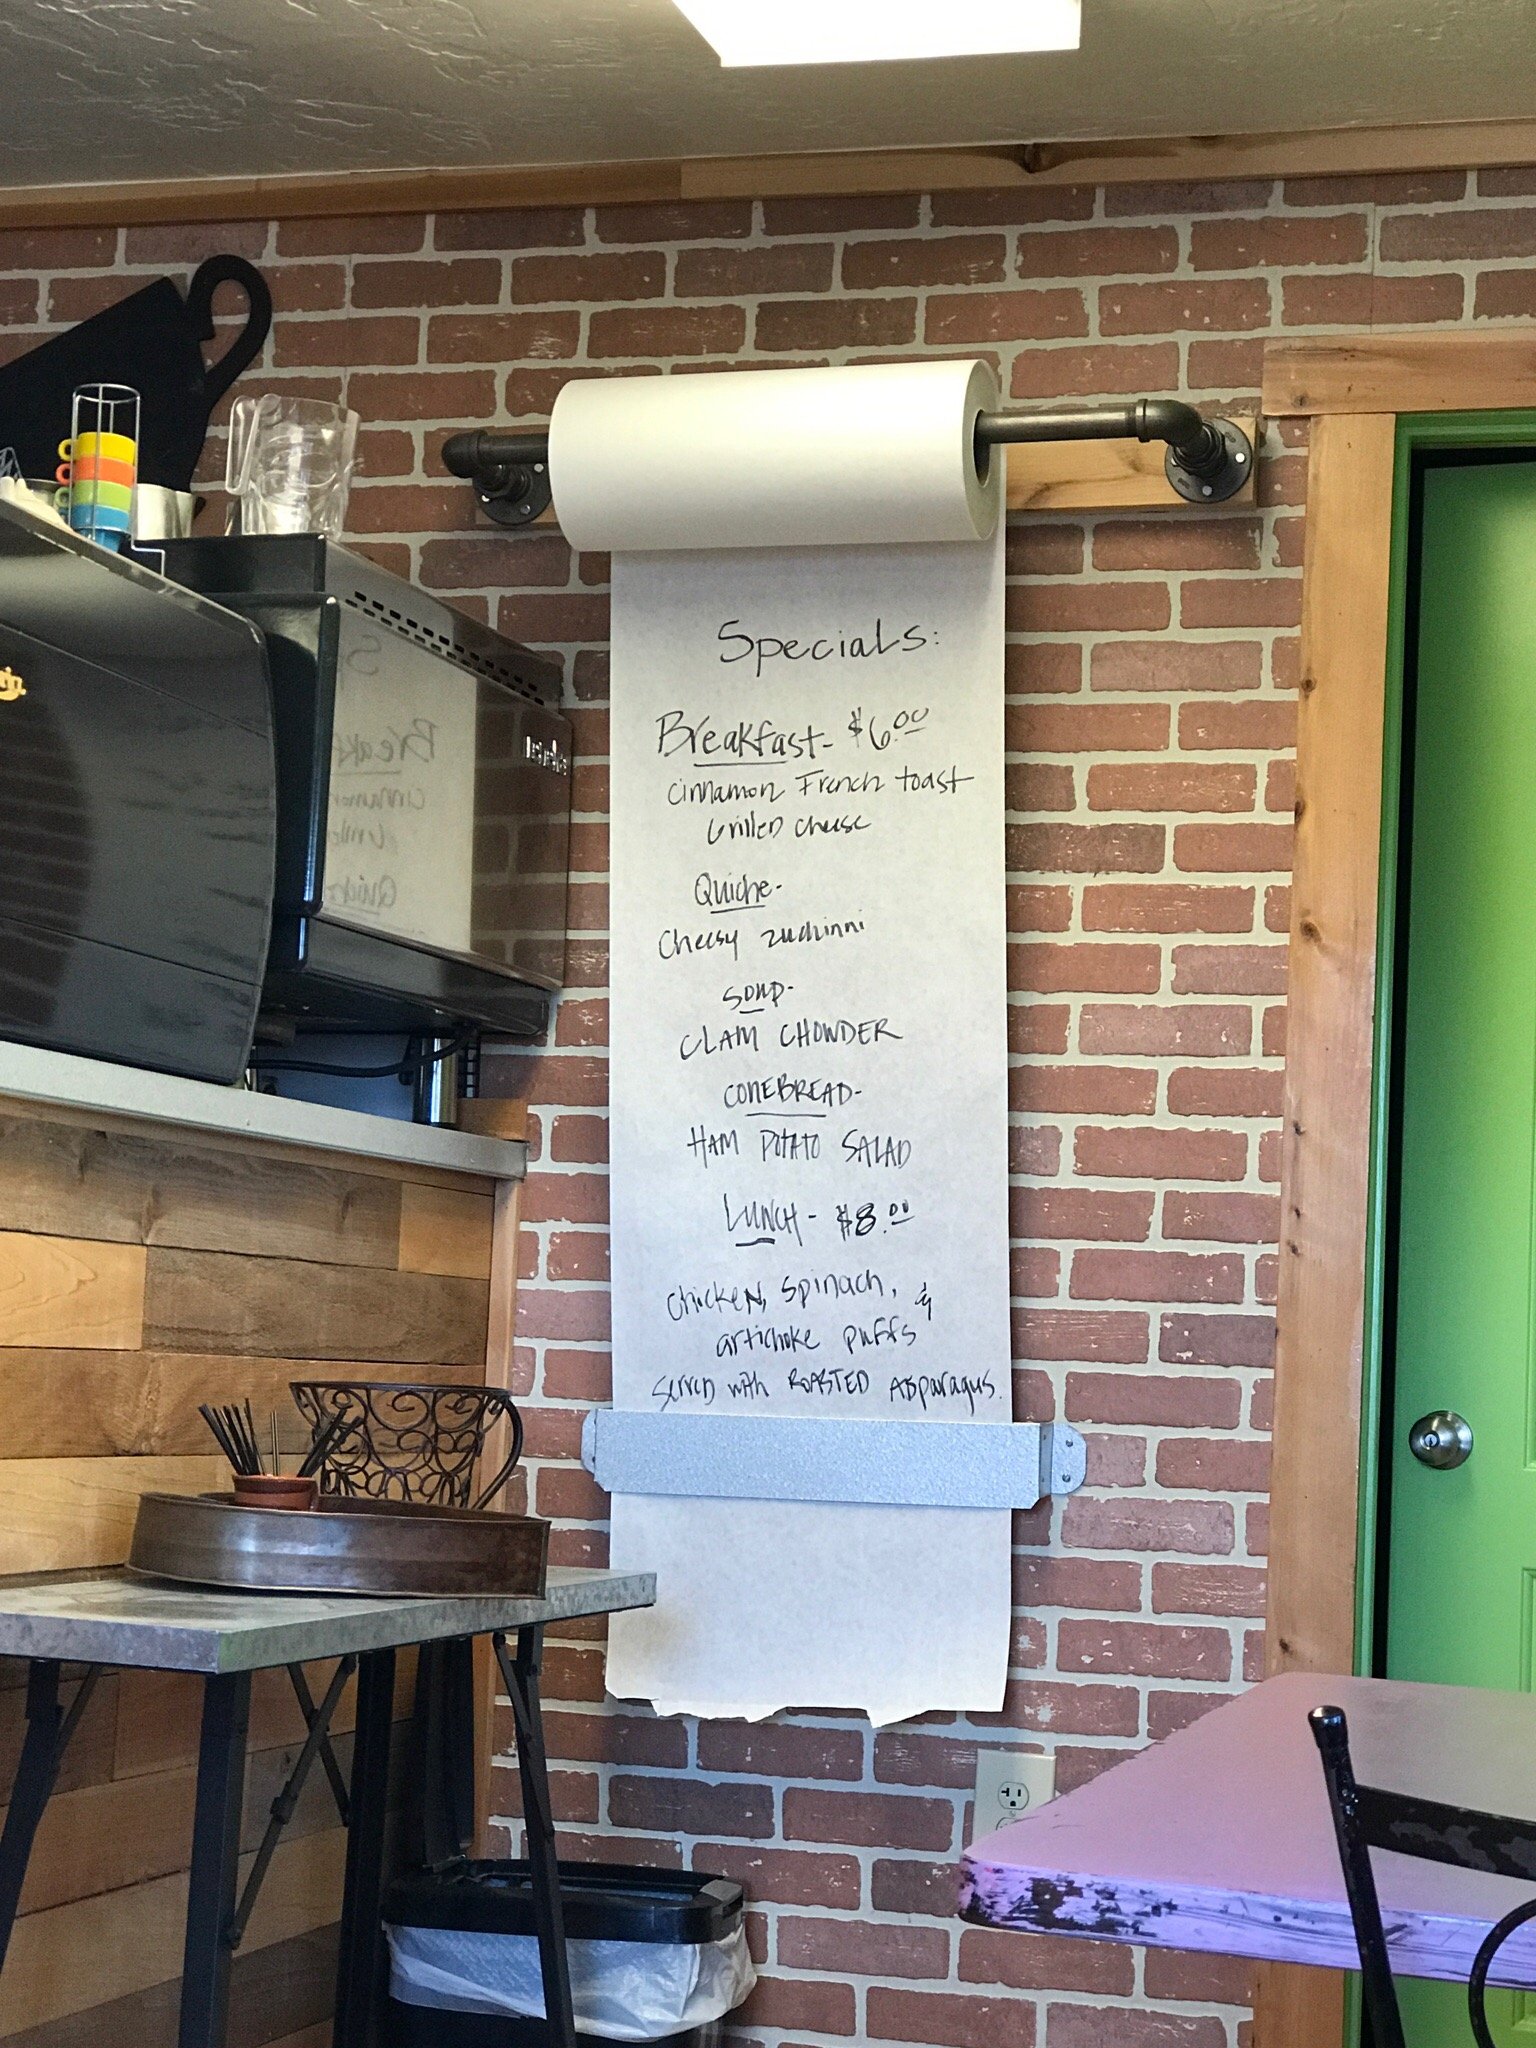 Specials:
Breakfast- $6.00
Cinnamon French toast
Grilled cheese
Quiche-
Cheesy zuchinni
SOUP-
CLAM CHOWDER
CONEBREAD-
HAM POTATO SALAD
LUNCH- $8.00
Chicken, Spinach, &
artichoke puffs
Served with ROASTED Asparagus.